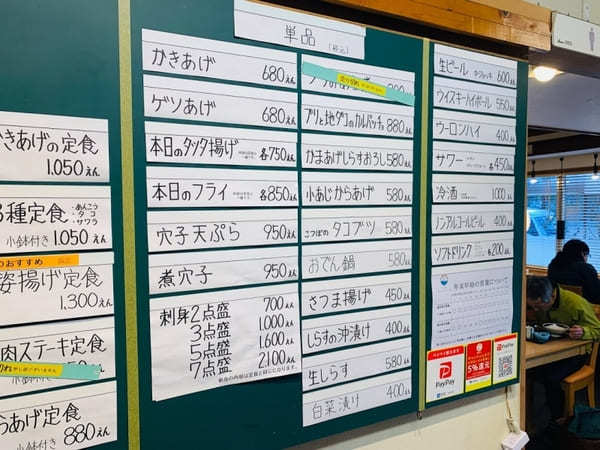 単品 (税込)
かきあげの定食
1.050えん
3種定食
・あんこう
・タコ
・サワラ
小鉢付き 1.050えん
のおすすめ
姿揚げ定食
1.300えん
肉ステーキ定食
らあげ定食
小鉢付き 880えん
かきあげ 680えん
ゲソあげ 680えん
本日のタツタ揚げ 各750えん
本日のフライ 各850えん
穴子天ぷら 950えん
煮穴子 950えん
刺身2点盛 700えん
3点盛 1.000えん
5点盛 1.600えん
7点盛 2.100えん
売り切れ
ブリと地ダコのカルパッチョ 880えん
かまあげしらすおろし 580えん
小あじからあげ 580えん
こつぼの タコブツ 580えん
おでん鍋 580えん
さつま揚げ 450えん
しらすの沖漬け 400えん
生しらす 580えん
白菜漬け 400えん
生ビール 中ジョッキ 600えん
ウイスキーハイボール 550えん
ウーロンハイ 400えん
サワー 各450えん
冷酒 1000えん
ノンアルコールビール 400えん
ソフトドリンク 各200えん
年末年始の営業について
PayPay
5%還元
PayPay